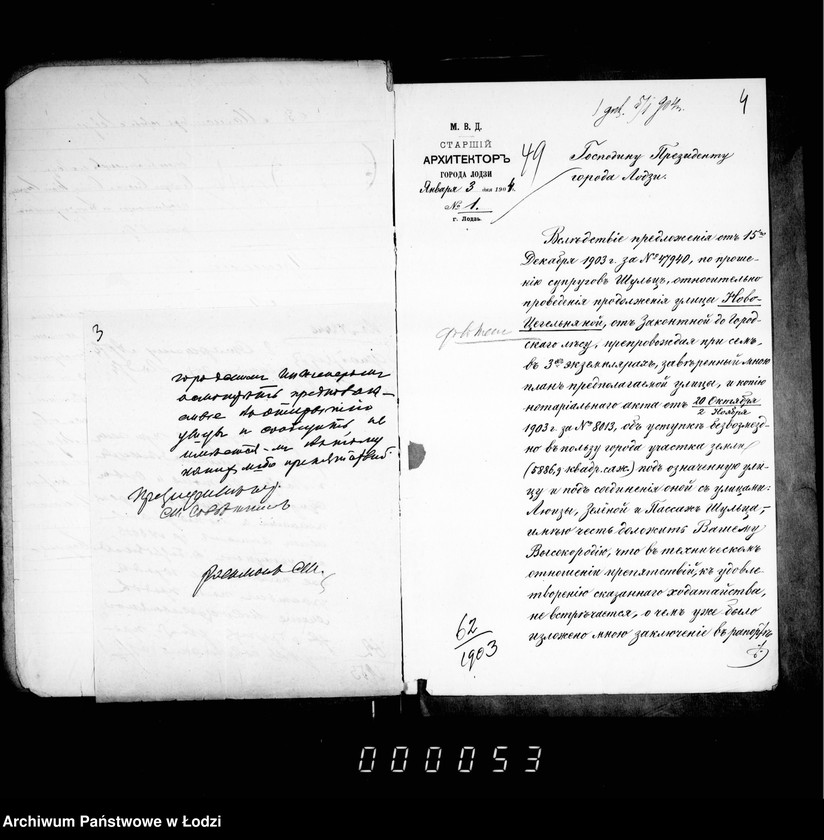 3
городскимъ Инженеромъ
улицы и сообщить не
имѣется-ли къ этому
какихъ либо препятствій.
4
49
М. В. Д.
СТАРШІЙ
АРХИТЕКТОРЪ
ГОРОДА ЛОДЗИ
Января 3 дня 1904 г.
№ 1.
г. Лодзь.
Господину Президенту
города Лодзи.
Вслѣдствіе предложенія отъ 15го
Декабря 1903 г. за № 47940, по проше-
нію супруговъ Шульцъ, относительно
проведенія продолженія улицы Ново-
Цегельняной, отъ Законтной до Город-
скаго лѣсу, препровождая при семъ,
въ 3хъ экземплярахъ, завѣренный мною
планъ предполагаемой улицы, и копію
нотаріальнаго акта отъ 20 Октября
2 Ноября
1903 г. за № 8013, объ уступкѣ безвозмезд-
но въ пользу города участка земли
(5886,9 квадр. саж.) подъ означенную ули-
цу и подъ соединенія оной съ улицами:
Люизы, Зеленой и Пассажъ Шульца,-
имѣю честь доложить Вашему
Высокородію, что въ техническомъ
отношеніи препятствій, къ удовле-
творенію сказаннаго ходатайства,
не встрѣчается, о чемъ уже было
изложено мною заключеніе въ рапортѣ
62
1903
000053
Archiwum Państwowe w Łodzi